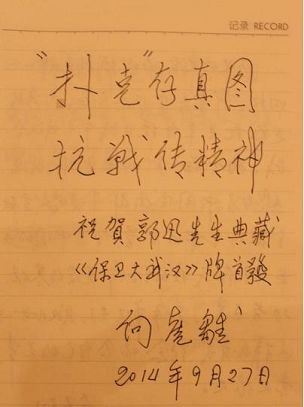 记录 RECORD
"扑克"存真图
抗战传精神
祝贺郭迅先生典藏
《保卫大武汉》牌首發
2014年9月27日